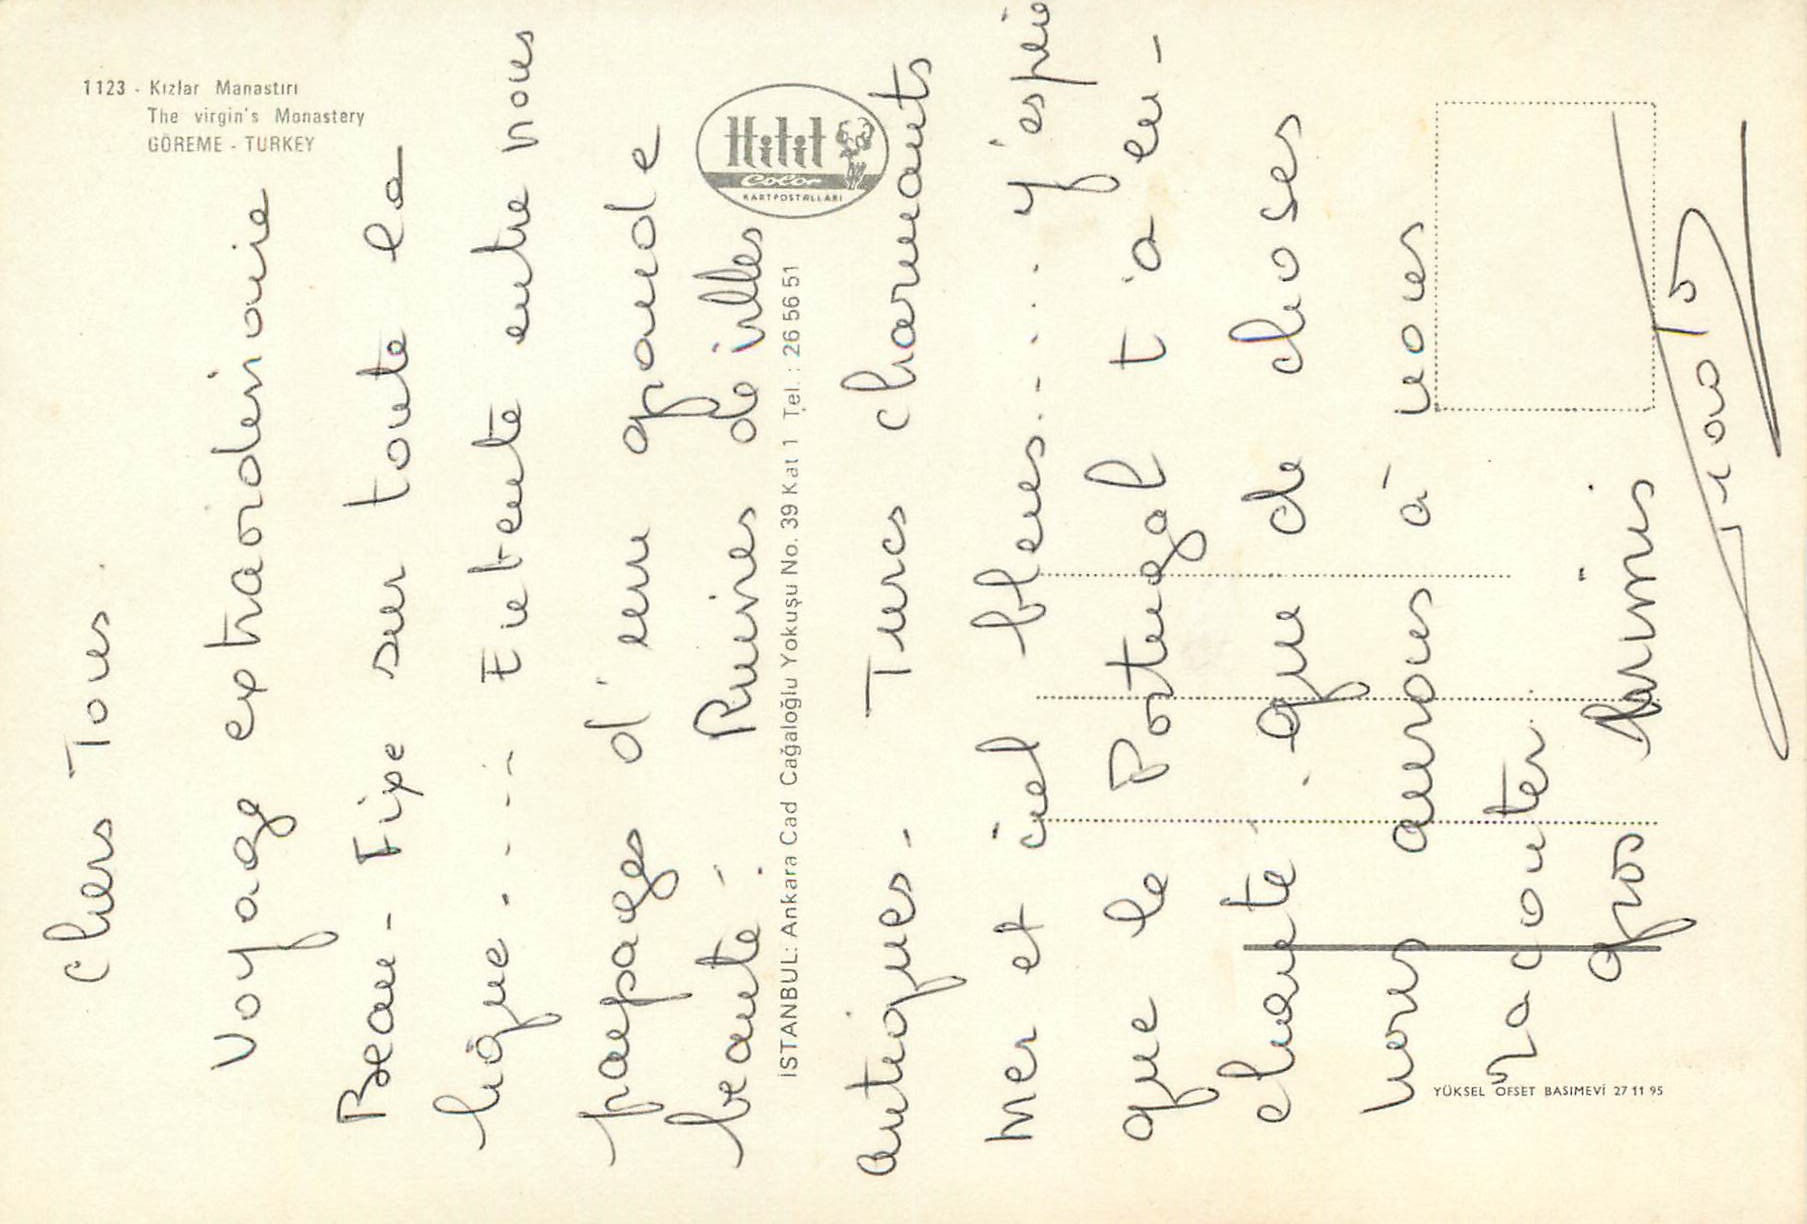 1123 - Kızlar Manastırı
The virgin's Monastery
GÖREME - TURKEY
Hitit
Color
KARTPOSTALLARI
İSTANBUL: Ankara Cad Cağaloğlu Yokuşu No. 39 Kat 1 Tel.: 26 56 51
YÜKSEL OFSET BASIMEVİ 27 11 95
Chers Tous.
Voyage extraordinaire
Beau-fixe sur toute la
ligne..... Entente entre nous
paysages d'une grande
beauté. Ruines de villes
antiques. Turcs charmants
mer et ciel bleus....... j'espère
que le Portugal t'a en-
chanté. que de choses
nous aurons à nous
raconter.
gros